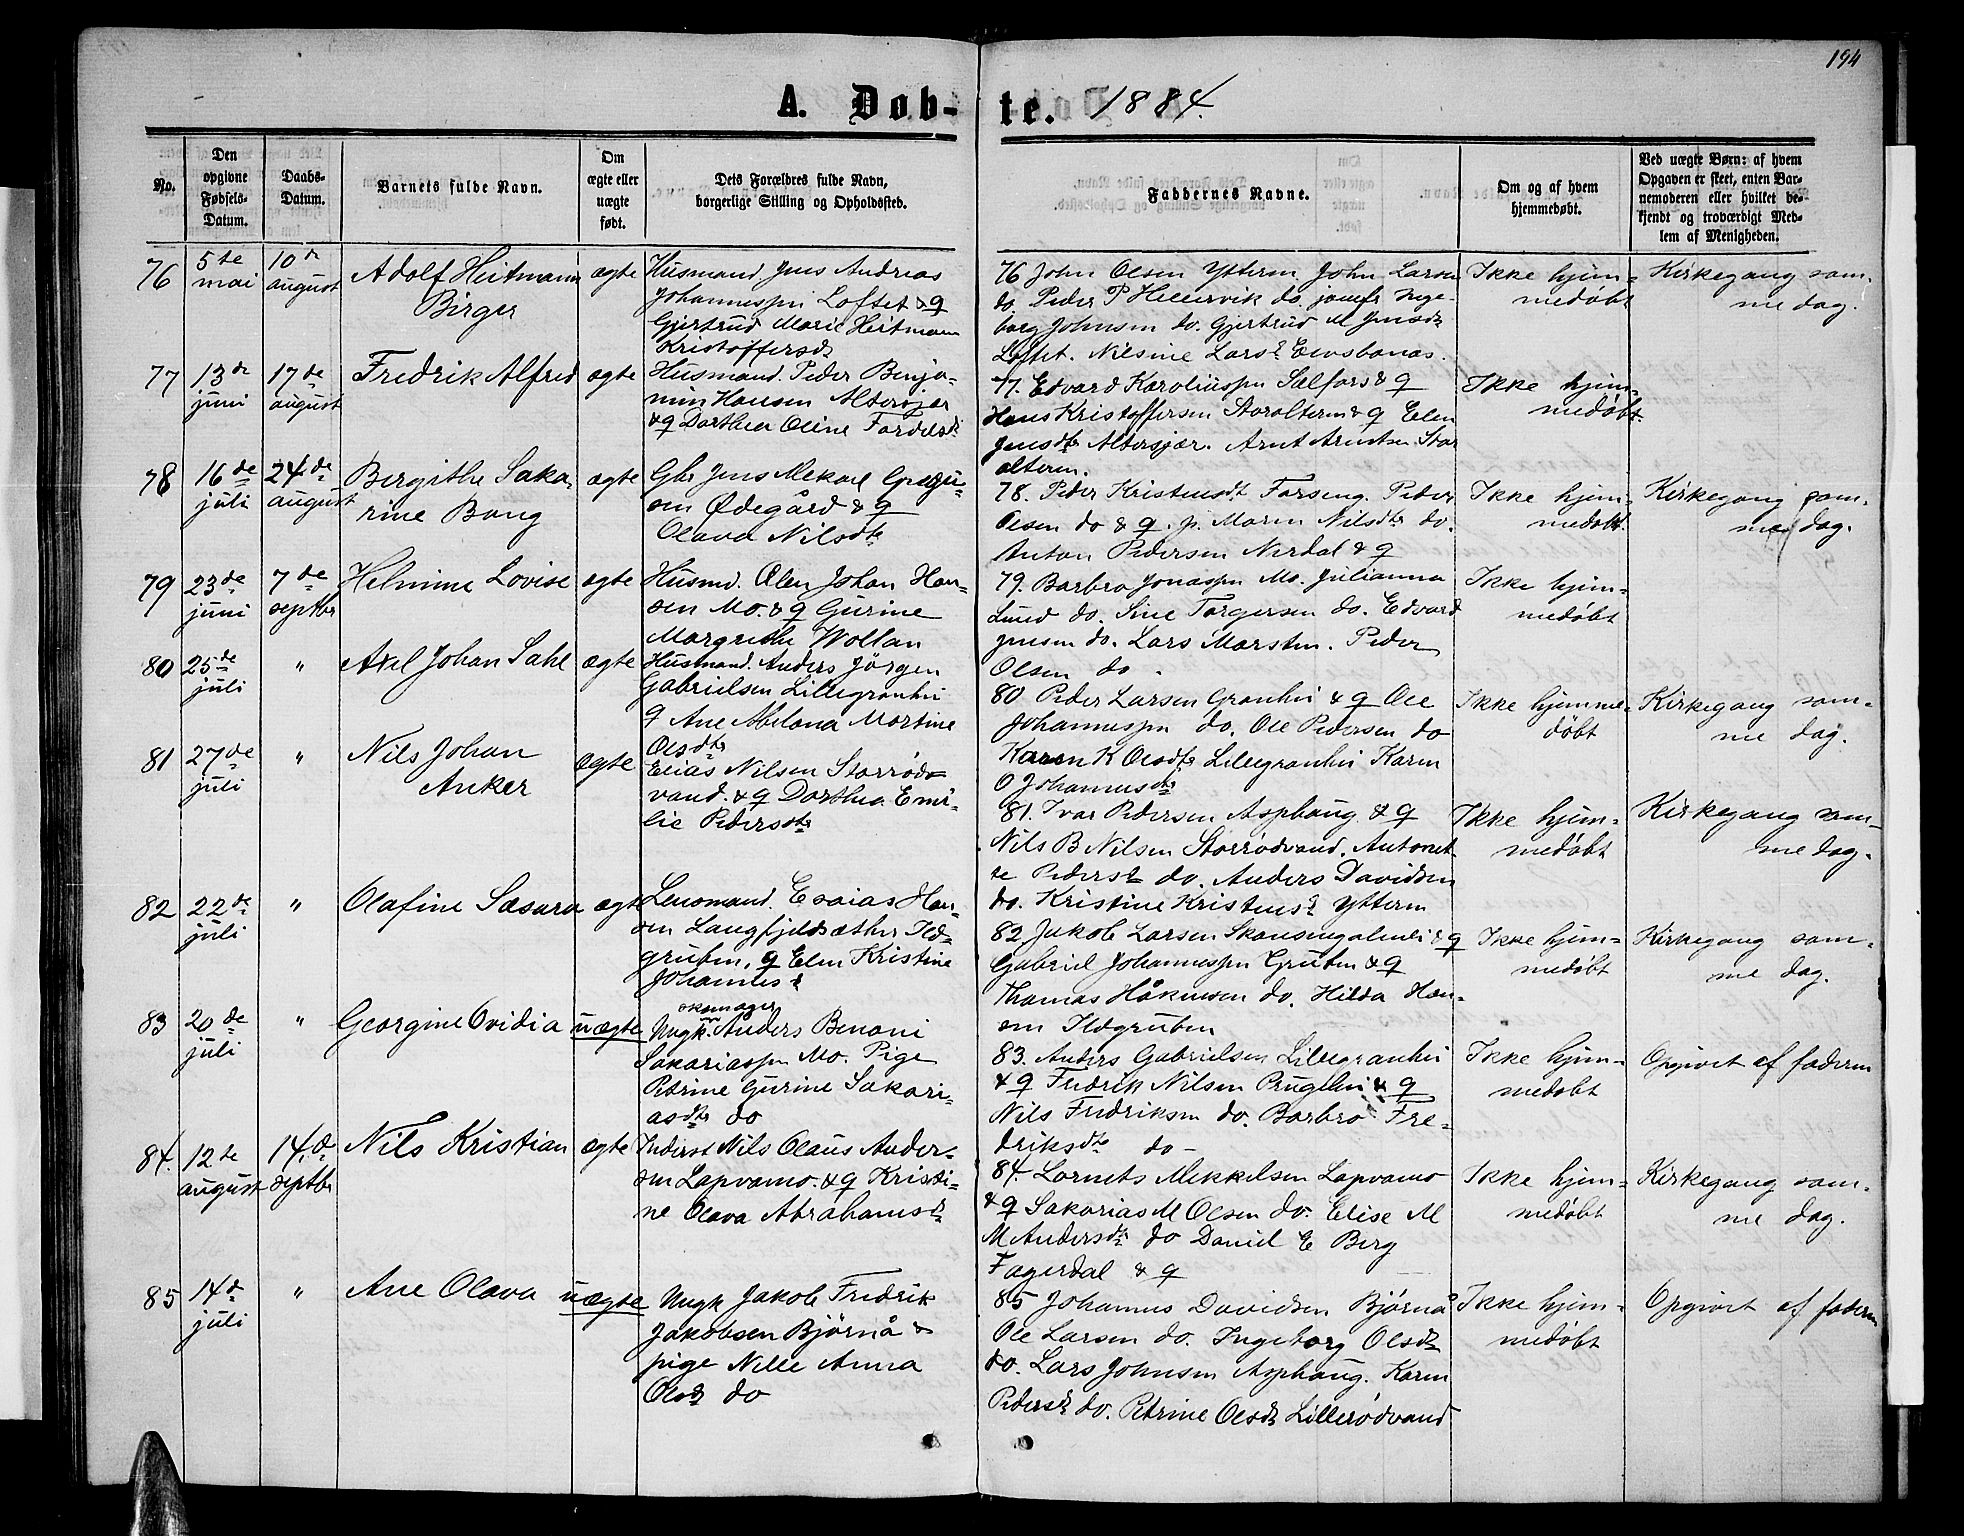 194
A. Døb-te. 1884.
No.
Den opgivne Fødsels-Datum.
Daabs-Datum.
Barnets fulde Navn.
Om ægte eller uægte født.
Dets Forældres fulde Navn, borgerlige Stilling og Opholdssted.
Faddernes Navne.
Om og af hvem hjemmedøbt.
Ved uægte Børn: af hvem Opgaven er skeet, enten Barnemoderen eller hvilket bekjendt og troværdigt Medlem af Menigheden.
76
5te mai
10de august
Adolf Heitmann
Birger
ægte
Husmand Jens Andreas
Johannessen Loftet & q
Gjertrud Marie Heitmann
Kristoffersdr
76 John Olsen Yttern John Larsen
do. Peder P Hellervik do. jomfr Inge-
borg Johnsen do. Gjertrud M Jensdr
Loftet. Nilsine Larsd
Ikke hjem-
medøbt
Kirkegang sam-
me dag.
77
13de juni
17de august
Fredrik Alfred
ægte
Husmand. Peder Benja-
min Hansen Altersjær
& q Dorthea Oline
77. Edvard Karoliussen Selfors & q
Hans Kristoffersen Storalteren & q Elen
Jensdtr Altersjær. Arnt Arntsen Stor
alteren.
Ikke hjem-
medøbt
78
16de juli
24de august
Bergithe Saka-
rine Bang
ægte
Gbr Jens Mekael Gregu-
sen Ødegård & q
Olava Nilsdtr
78. Peder Kristensdt Forseng. Peder
Olsen do & q. p. Maren Nilsdtr do.
Anton Pedersen Nerdal & q
Ikke hjem-
medøbt
Kirkegang sam-
me dag.
79
23de juni
7de septbr
Helmine Lovise
ægte
Husmd. Olen Johan Han-
sen Mo. & q Gurine
Margrethe Wollan
79. Barbro Jonassen Mo. Julianna
Lund do. Sine Torgersen do. Edvard
Jensen do. Lars Marsten. Peder
Olsen do -
Ikke hjem-
medøbt
80
25de juli
"
Axel Johan Sahl
ægte
Husmand. Anders Jörgen
Gabrielsen Lillegranhei
q Ane Abelona Martine
Olsdtr
80 Peder Larsen Granhei & q Ole
Johannessen do. Ole Pedersen do
Karen K Olsdtr Lillegranhei Karen
O Johannesdtr
Ikke hjemme-
døbt
Kirkegang sam-
me dag.
81
27de juli
"
Nils Johan
Anker
ægte
Elias Nilsen Storrødv
vand. & q Dorthea Emi-
lie Pedersdtr
81. Ivar Pedersen Asphaug & q
Nils B Nilsen Storrødvand. Antonet-
te Pedersd do. Anders Davidsen
do. Kristine Kristensd Yttern
Ikke hjem-
medøbt
Kirkegang sam-
me dag.
82
22de juli
"
Olafine Sæsara
ægte
Lensmand. Esaias Han-
sen Langfjeldsæther Ild-
gruben, q Elen Kristine
Johannesd
82 Jakob Larsen Skansengalmei & q
Gabriel Johannessen Gruben & q
Thomas Håkensen do. Hilda Han-
sen Ildgruben
Ikke hjem-
medøbt
Kirkegang sam-
me dag.
83
20de juli
"
Georgine Ovidia
uægte
skomager
Ungk. Anders Benoni
Sakariassen Mo. Pige
Petrine Gurine Sakari-
asdtr do
83. Anders Gabrielsen Lillegranhei
& q Fredrik Nilsen Prughei & q
Nils Fredriksen do. Barbro Fre-
driksdtr do -
Ikke hjem-
medøbt
Opgivet af faderen
84.
12te august
14.de septbr
Nils Kristian
ægte
Inderst Nils Olaus Ander-
sen Lapvamo. & q Kristi-
ne Olava Abrahamsd
84. Lornts Mekkelsen Lapvamo
& q Sakarias M Olsen do. Elise M
M Andersdtr do Daniel E Berg
Fagerdal & q
Ikke hjem-
medøbt
Kirkegang sam-
me dag.
85
14de juli
"
Ane Olava
uægte
Ungk Jakob Fredrik
Jakobsen Björnå &
pige Nille Anna
Olsd do
85 Johannes Davidsen Bjørnå
Ole Larsen do. Ingeborg Olsdtr
do. Lars Johnsen Asphaug. Karen
Pedersd do. Petrine Olsdtr Lillerødvand
Ikke hjem-
medøbt
Opgivet af faderen